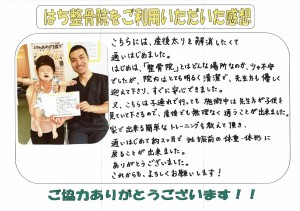 はち整骨院をご利用いただいた感想
こちらには、産後太りを解消したくて
通いはじめました。
はじめは、「整骨院」とはどんな場所なのか、少々不安
でしたが、院内はとても明るく清潔で、先生方も優しく
迎えて下さり、すぐに安心できました。
又、こちらは子連れで行っても 施術中は先生方が子供を
見ていて下さるので、産後でも無理なく通うことが出来ました。
家で出来る簡単なトレーニングも教えて頂き、
通いはじめて約2ヶ月で 妊娠前の体重・体形に
戻ることが出来ました。
ありがとうございました。
これからも、よろしくお願いします!
ご協力ありがとうございます!!